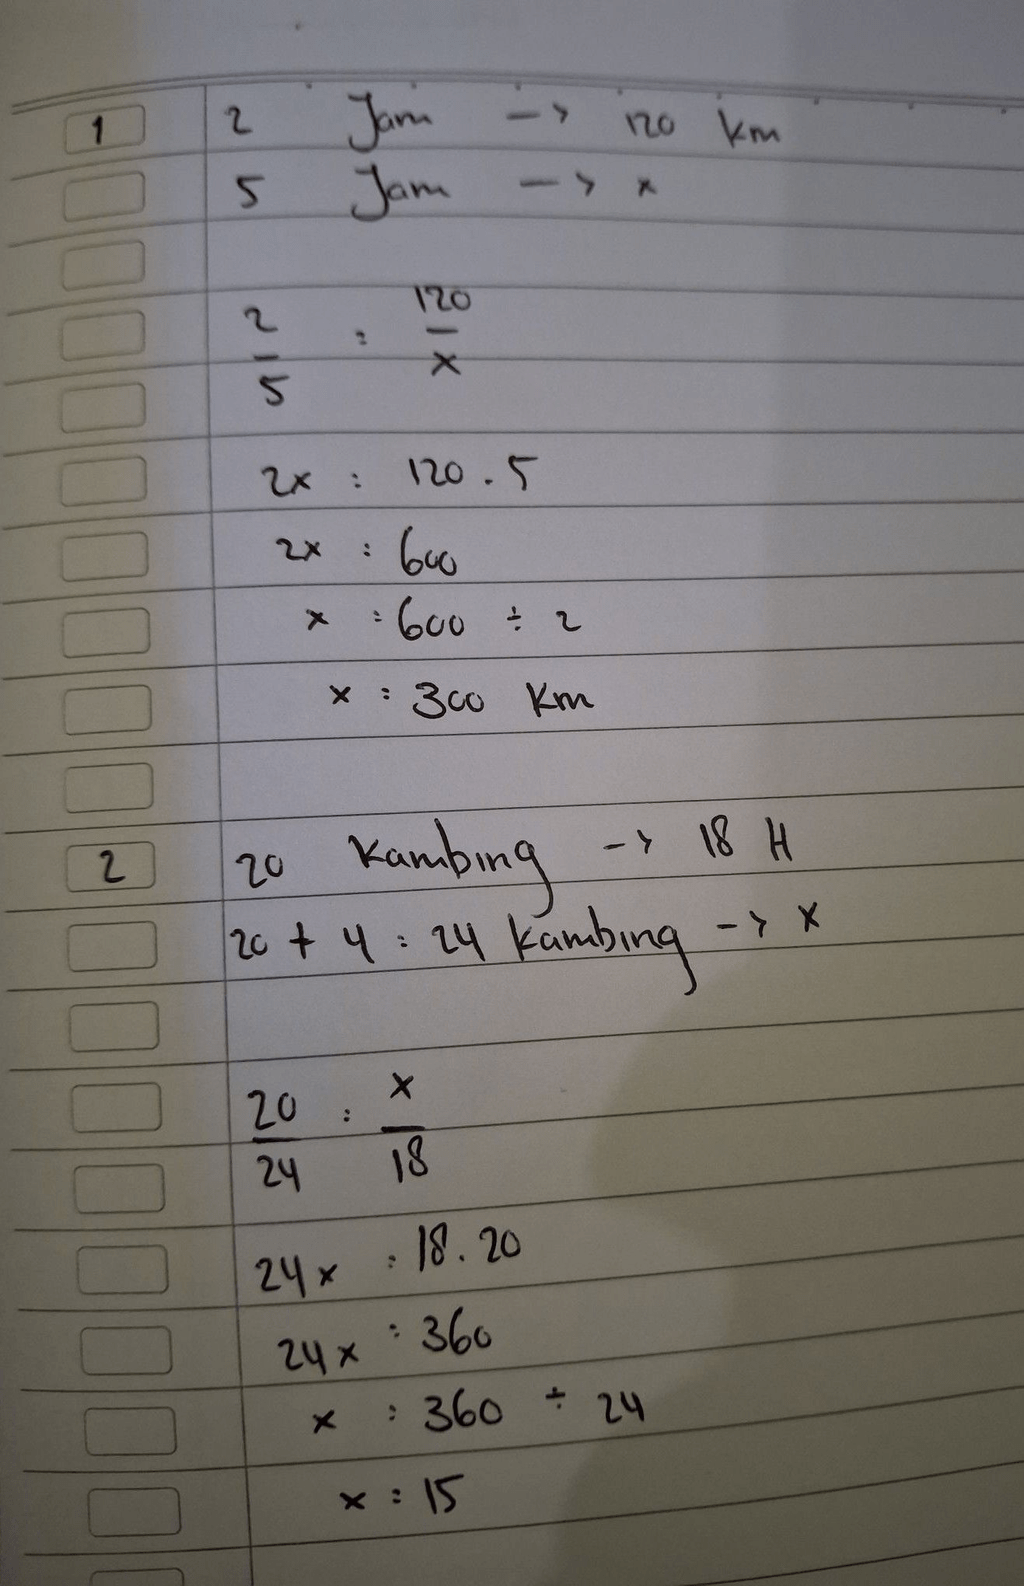 1 2 Jam -> 120 km
5 Jam -> x
2/5 = 120/x
2x = 120 . 5
2x = 600
x = 600 ÷ 2
x = 300 Km
2 20 Kambing -> 18 H
20 + 4 = 24 Kambing -> x
20/24 = x/18
24x = 18.20
24x = 360
x = 360 ÷ 24
x = 15